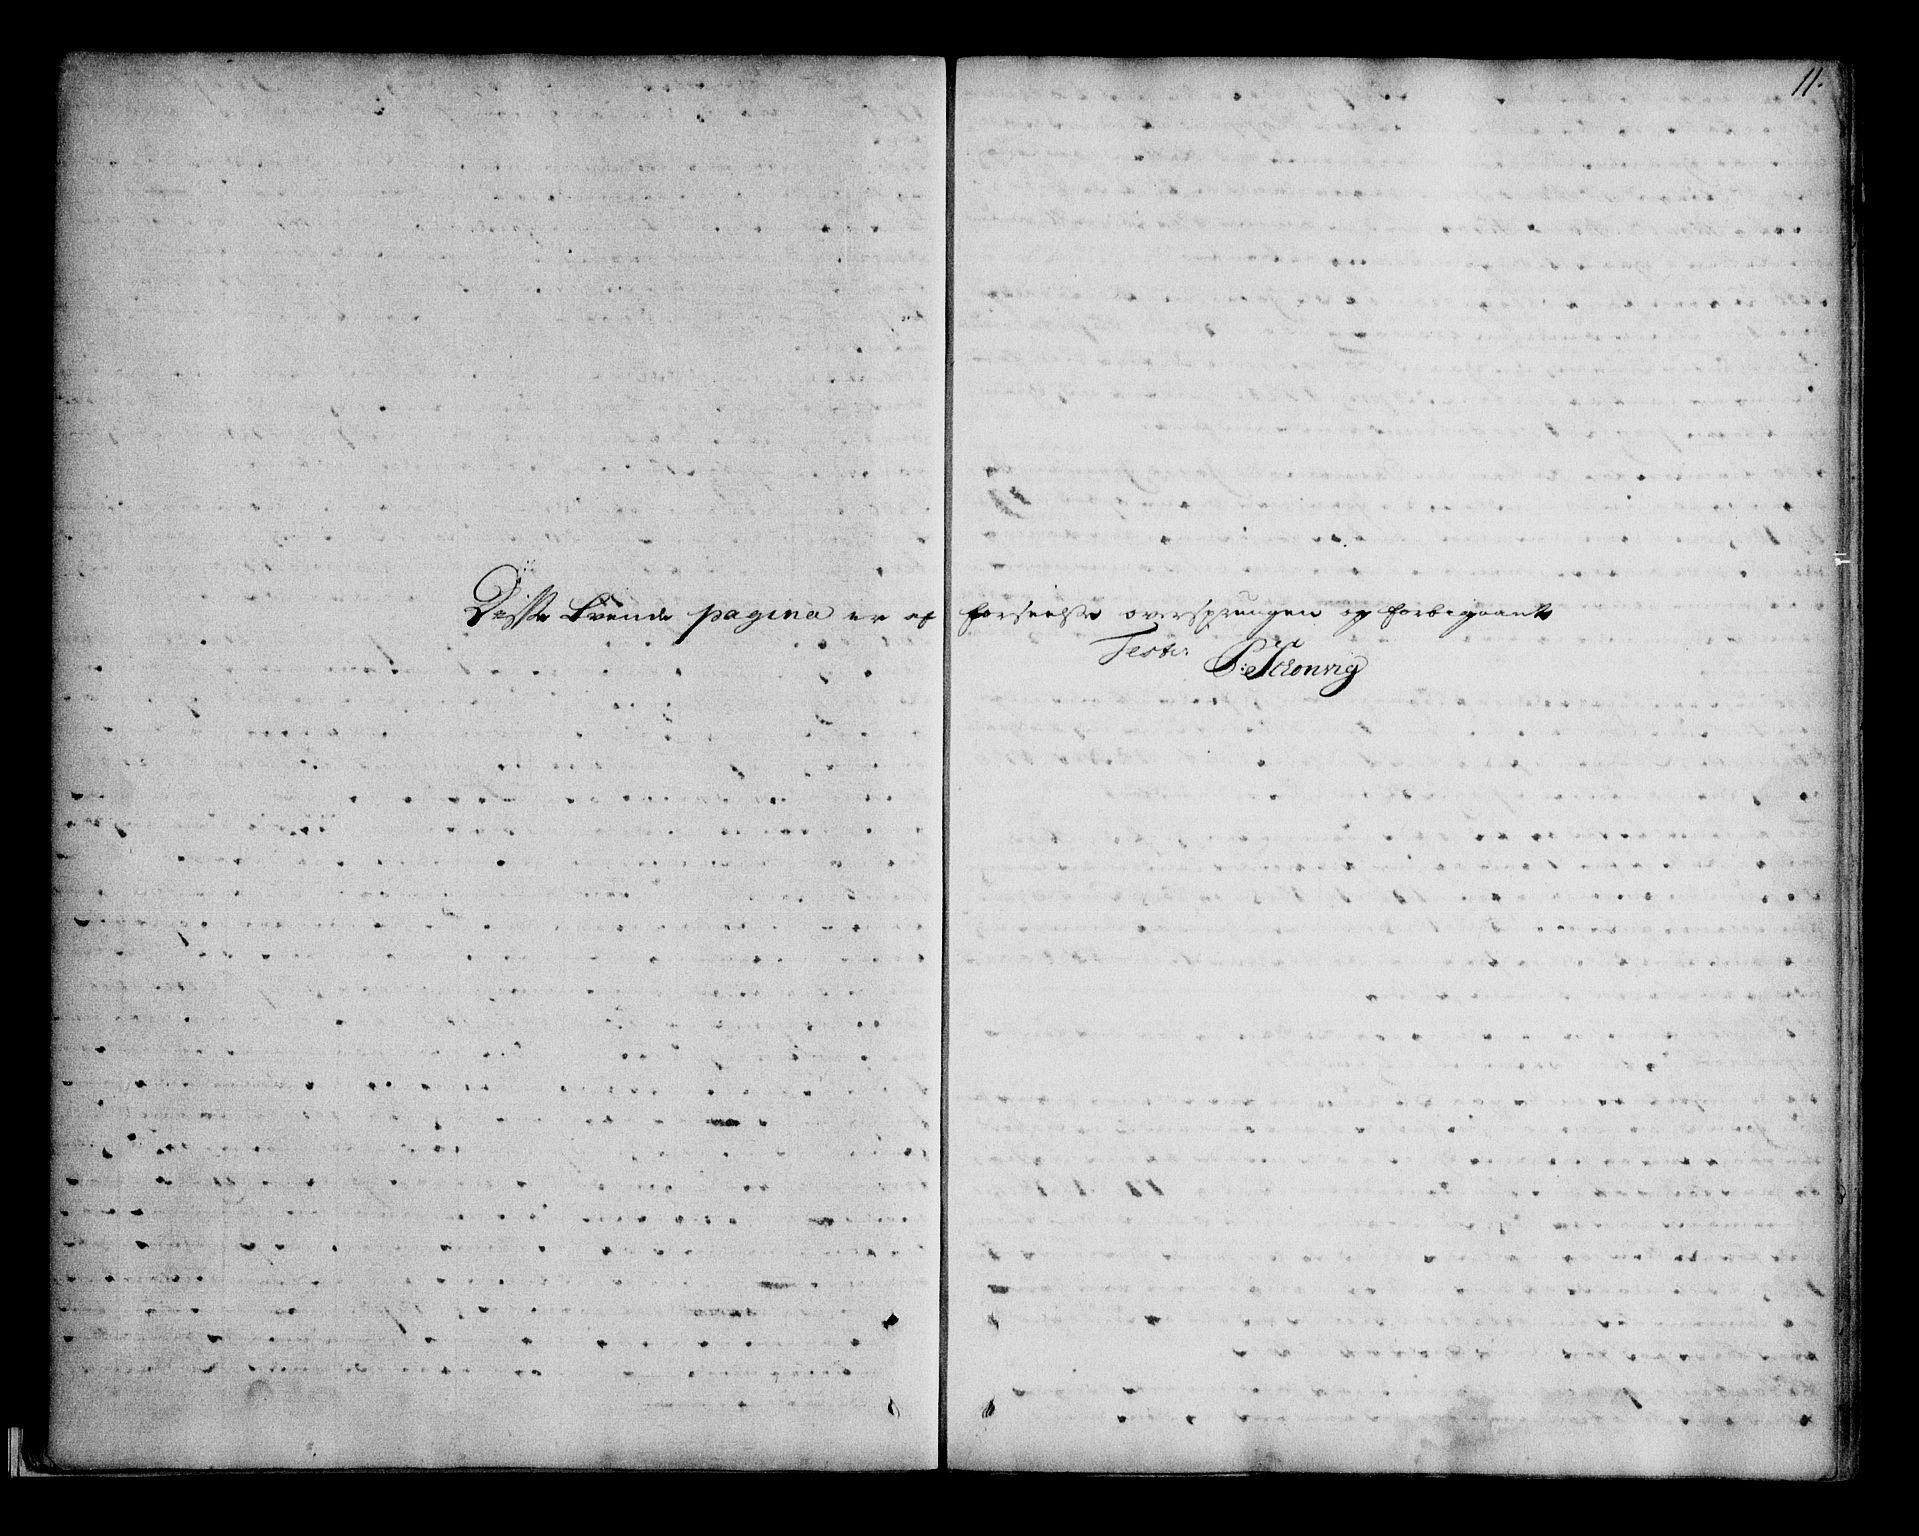 11.
Disse tvende pagina er af forseelse oversprungen og forbigaaet
Test: P: Schonvig